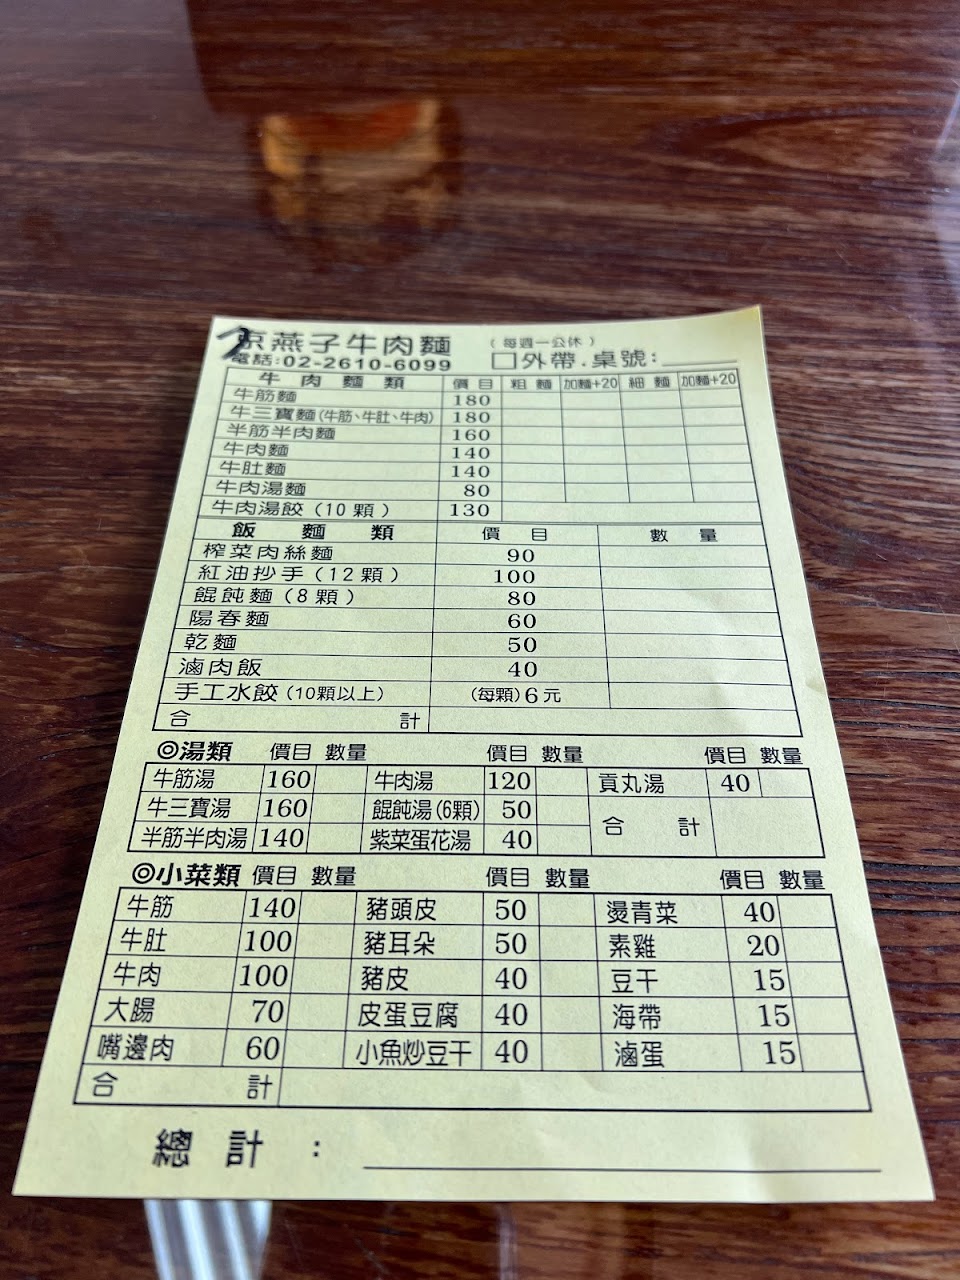 京燕子牛肉麵 (每週一公休)
電話:02-2610-6099 □外帶.桌號:
牛肉麵類 價目 粗麵 加麵+20 細麵 加麵+20
牛筋麵 180
牛三寶麵(牛筋、牛肚、牛肉) 180
半筋半肉麵 160
牛肉麵 140
牛肚麵 140
牛肉湯麵 80
牛肉湯餃(10顆) 130
飯麵類 價目 數量
榨菜肉絲麵 90
紅油抄手(12顆) 100
餛飩麵(8顆) 80
陽春麵 60
乾麵 50
滷肉飯 40
手工水餃(10顆以上) (每顆)6元
合計
◎湯類 價目 數量 價目 數量 價目 數量
牛筋湯 160 牛肉湯 120 貢丸湯 40
牛三寶湯 160 餛飩湯(6顆) 50 合計
半筋半肉湯 140 紫菜蛋花湯 40
◎小菜類 價目 數量 價目 數量 價目 數量
牛筋 140 豬頭皮 50 燙青菜 40
牛肚 100 豬耳朵 50 素雞 20
牛肉 100 豬皮 40 豆干 15
大腸 70 皮蛋豆腐 40 海帶 15
嘴邊肉 60 小魚炒豆干 40 滷蛋 15
合計
總計: